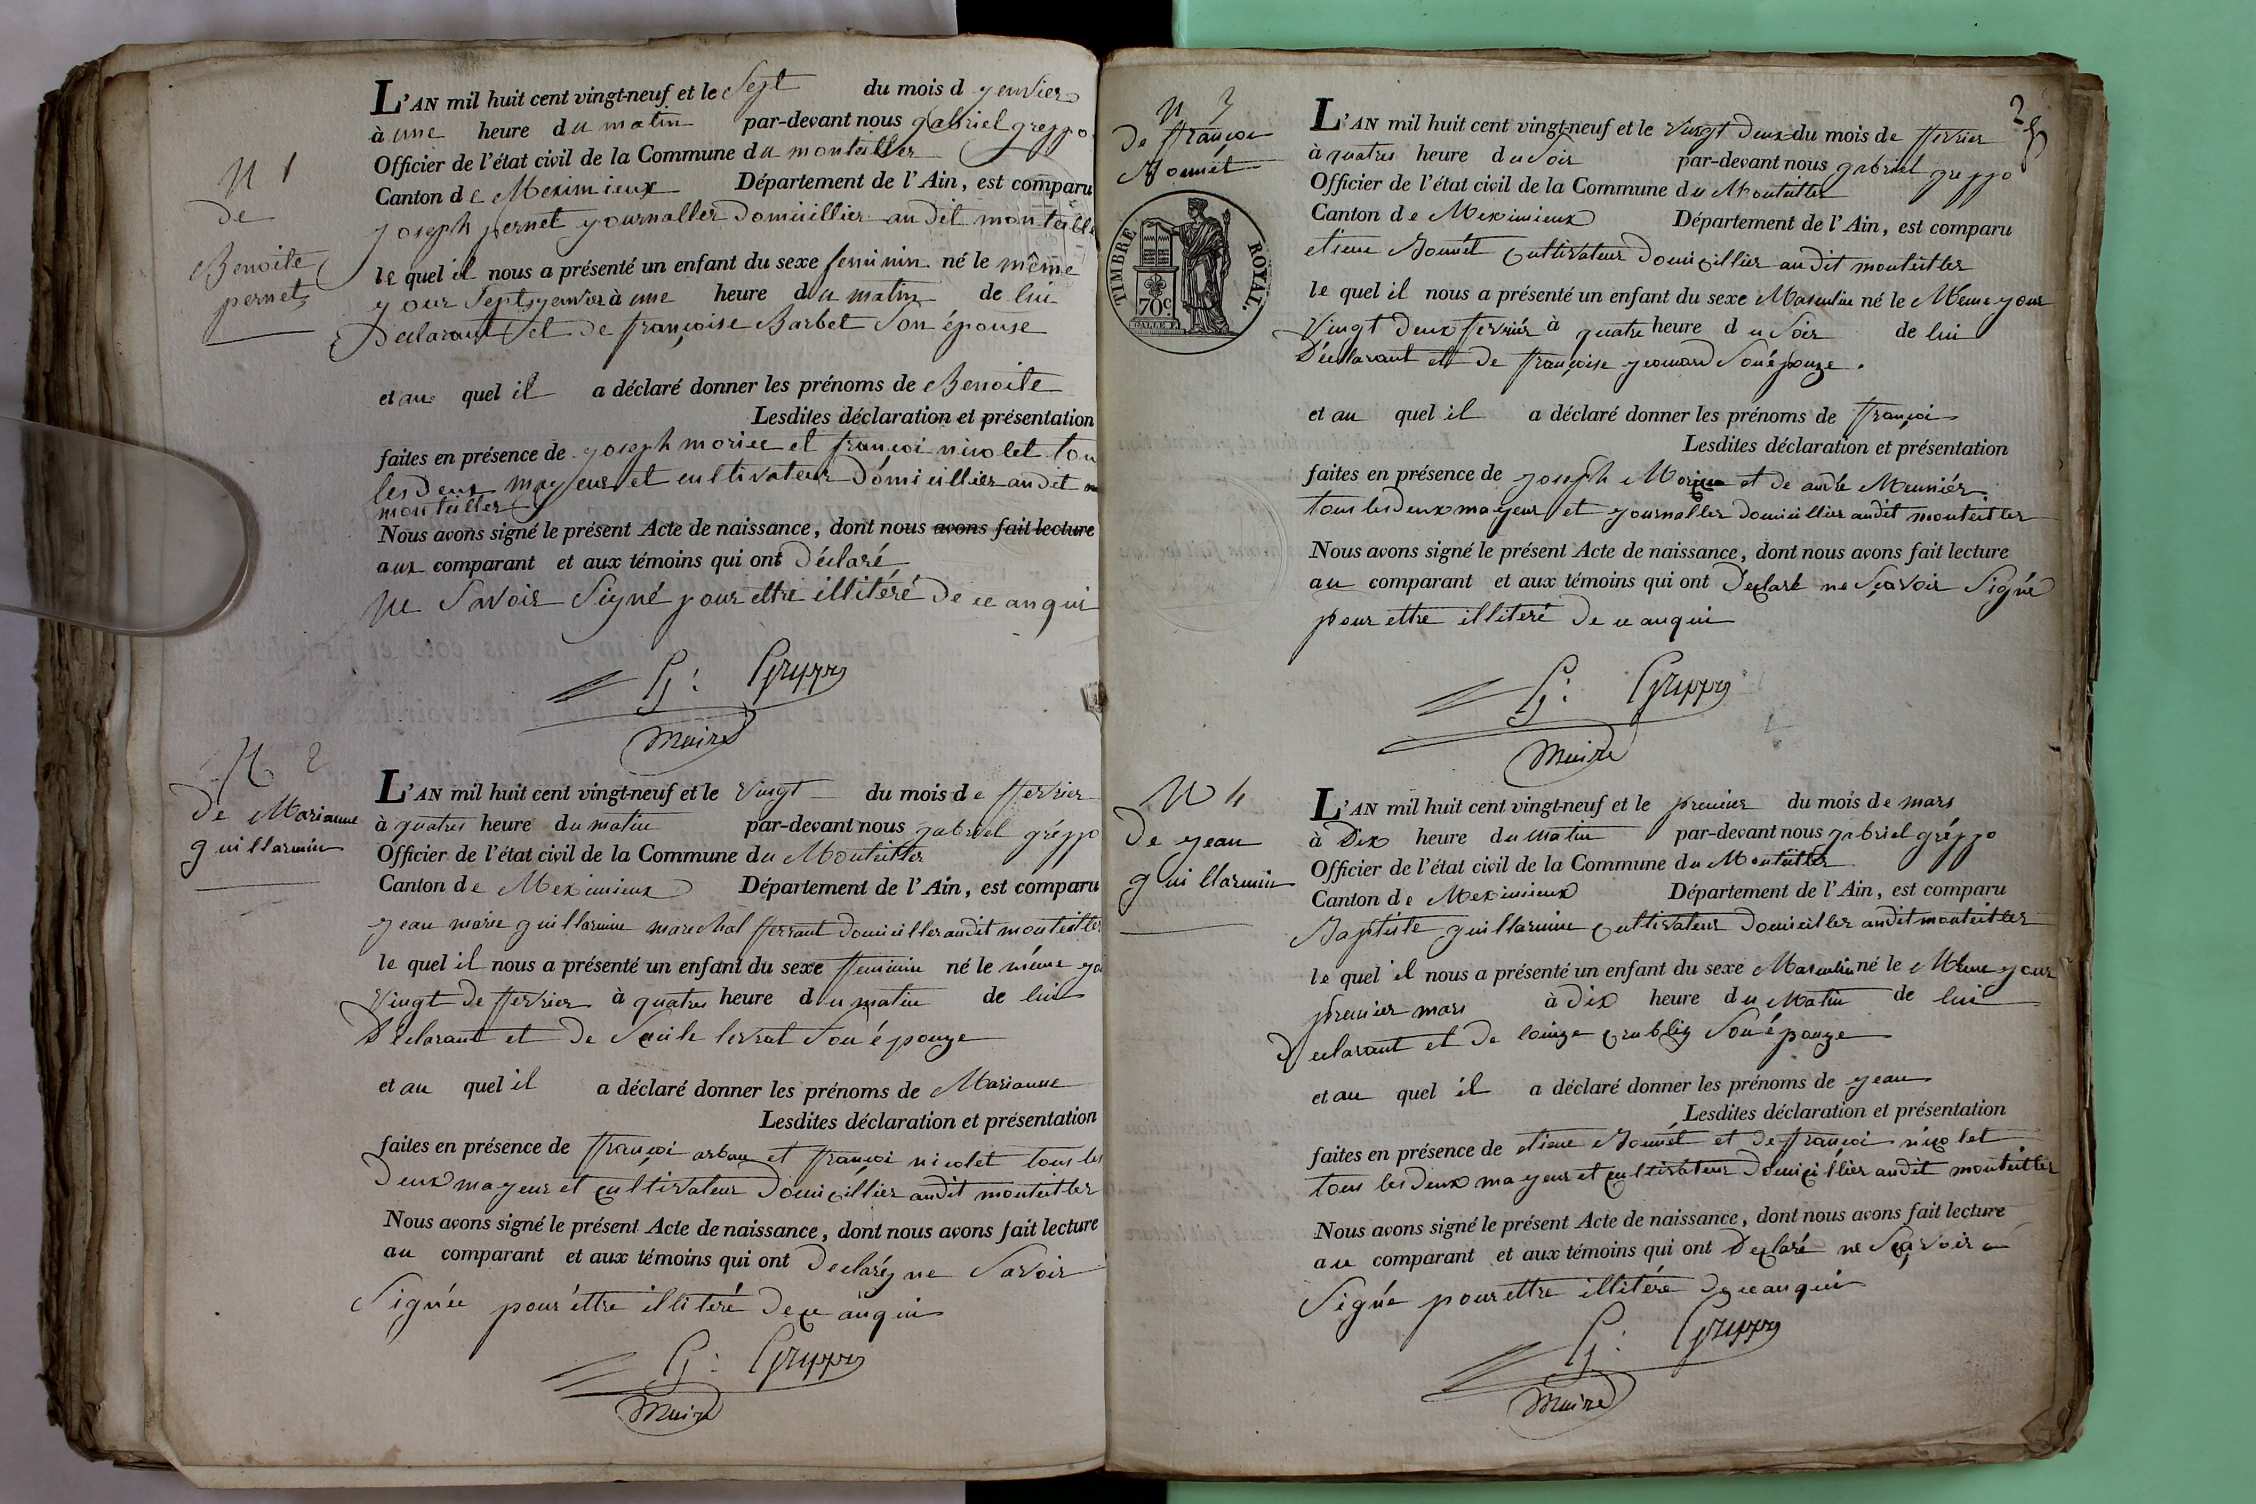 N 1
de
Benoite
pernet
L'AN mil huit cent vingt-neuf et le Sept du mois d yenvier
à une heure du matin par-devant nous gabriel greppo
Officier de l'état civil de la Commune du monteiller
Canton de Meximieux Département de l'Ain, est comparu
yoseph pernet yournallier Domicillier audit monteille
le quel il nous a présenté un enfant du sexe feminin né le même
your Sept yenvier à une heure du matin de lui
Declarant et de françoise Barbet Son épouse
et au quel il a déclaré donner les prénoms de Benoite
Lesdites déclaration et présentation
faites en présence de yoseph et françoi nicolet tou
les deux mayeur et cultivateur Domicillier audit
monteiller
Nous avons signé le présent Acte de naissance, dont nous avons fait lecture
aux comparant et aux témoins qui ont Déclaré
ne Savoir Signé pour ettre illitéré De ce anqui
G: Greppo
Maire
N 2
De Marianne
guillarmin
L'AN mil huit cent vingt-neuf et le Vingt du mois de ffevrier
à quatres heure du matin par-devant nous gabriel gréppo
Officier de l'état civil de la Commune du Monteiller
Canton de Meximieux Département de l'Ain, est comparu
yean marie guillarmin marechal fferrant domicillier audit monteiller
le quel il nous a présenté un enfant du sexe ffeminin né le même
Vingt De ffevrier à quatres heure du matin de lui
Déclarant et De Son épouze
et au quel il a déclaré donner les prénoms de Marianne
Lesdites déclaration et présentation
faites en présence de ffrançoi et ffrançoi nicolet tous les
Deux mayeur et cultivateur Domicillier audit monteiller
Nous avons signé le présent Acte de naissance, dont nous avons fait lecture
au comparant et aux témoins qui ont Declaré ne Savoir
Signée pour ettre illiteré De ce anqui
G: Greppo
Maire
2
N 3
De ffrançoi
Monnét
TIMBRE ROYAL.
70c
L'AN mil huit cent vingt-neuf et le Vingt Deux du mois de ffevrier
à quatres heure du Soir par-devant nous gabriel greppo
Officier de l'état civil de la Commune du Monteiller
Canton de Meximieux Département de l'Ain, est comparu
etiene Monnét Cultivateur Domicillier audit monteiller
le quel il nous a présenté un enfant du sexe Masculin né le Meme your
Vingt Deux fevriér à quatre heure du Soir de lui
Déclarant et De ffrançoise Son épouze.
et au quel il a déclaré donner les prénoms de ffrançoi
Lesdites déclaration et présentation
faites en présence de yoseph et de andré Meuniér
tous les deux mayeur et yournallier domicillier audit monteiller
Nous avons signé le présent Acte de naissance, dont nous avons fait lecture
au comparant et aux témoins qui ont Déclaré ne Sçavoir Signé
pour ettre illiteré De ce anqui
G: Greppo
Maire
N 4
De yean
guillarmin
L'AN mil huit cent vingt-neuf et le premier du mois de mars
à Dix heure du Matin par-devant nous gabriel gréppo
Officier de l'état civil de la Commune du Monteiller
Canton de Meximieux Département de l'Ain, est comparu
Baptiste guillarmin Cultivateur Domicillier audit monteiller
le quel il nous a présenté un enfant du sexe Masculin né le Même your
premier mars à Dix heure du Matin de lui
Declarant et De louize Son épouze
et au quel il a déclaré donner les prénoms de yean
Lesdites déclaration et présentation
faites en présence de etiene Monnét et de ffrançoi nicolet
tous les deux mayeur et cultivateur Domicillier audit monteiller
Nous avons signé le présent Acte de naissance, dont nous avons fait lecture
au comparant et aux témoins qui ont Déclaré ne Sçavoir
Signé pour ettre illitéré De ce anqui
G: Greppo
Maire